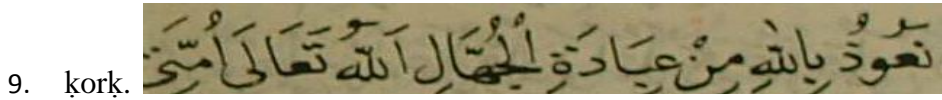 9. ḳorḳ. نَعُوذُ بِاللّٰهِ مِنْ عِبَادَةِ الْجُهَّالِ اَللّٰهُ تَعَالَى